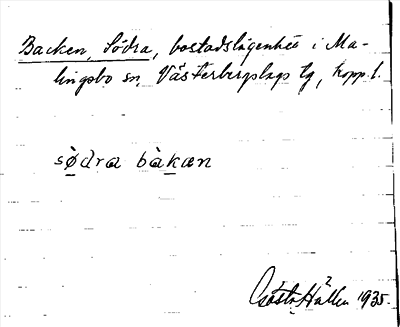 Backen, Södra, bostadslägenhet i Ma-
lingsbo sn, Västerbergslags tg, Kopp. l.
sødra bàkæn
Gösta Hallen 1935.